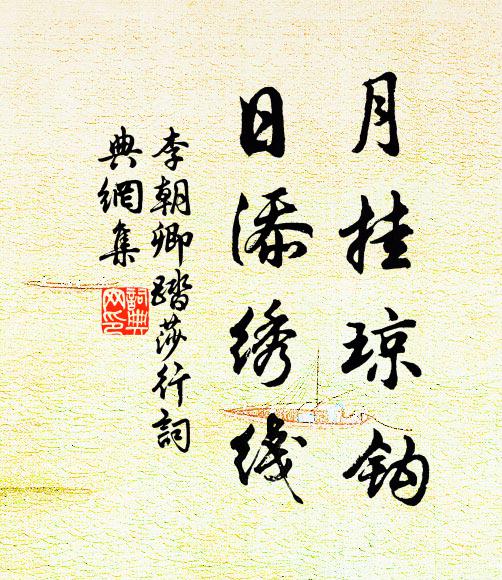 月挂琼钩
日添绣线
李朝卿踏莎行詞
典網集
詞典网印